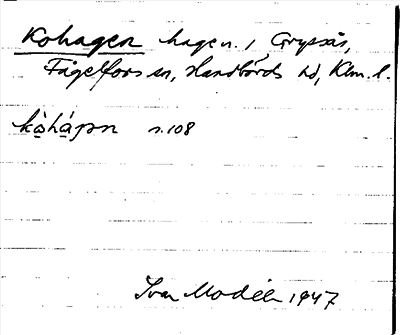 Kohagen hagen. i Gryssås,
Fågelfors sn, Handbörds hd, Klm. l.
kòhágən s. 108
Ivar Modéer 1947